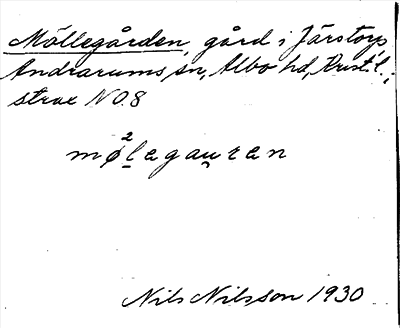 Möllegården, gård i Järstorp,
Andrarums sn, Albo hd, Krist. l.;
strax NO 8
mø²legau̯ren
Nils Nilsson 1930